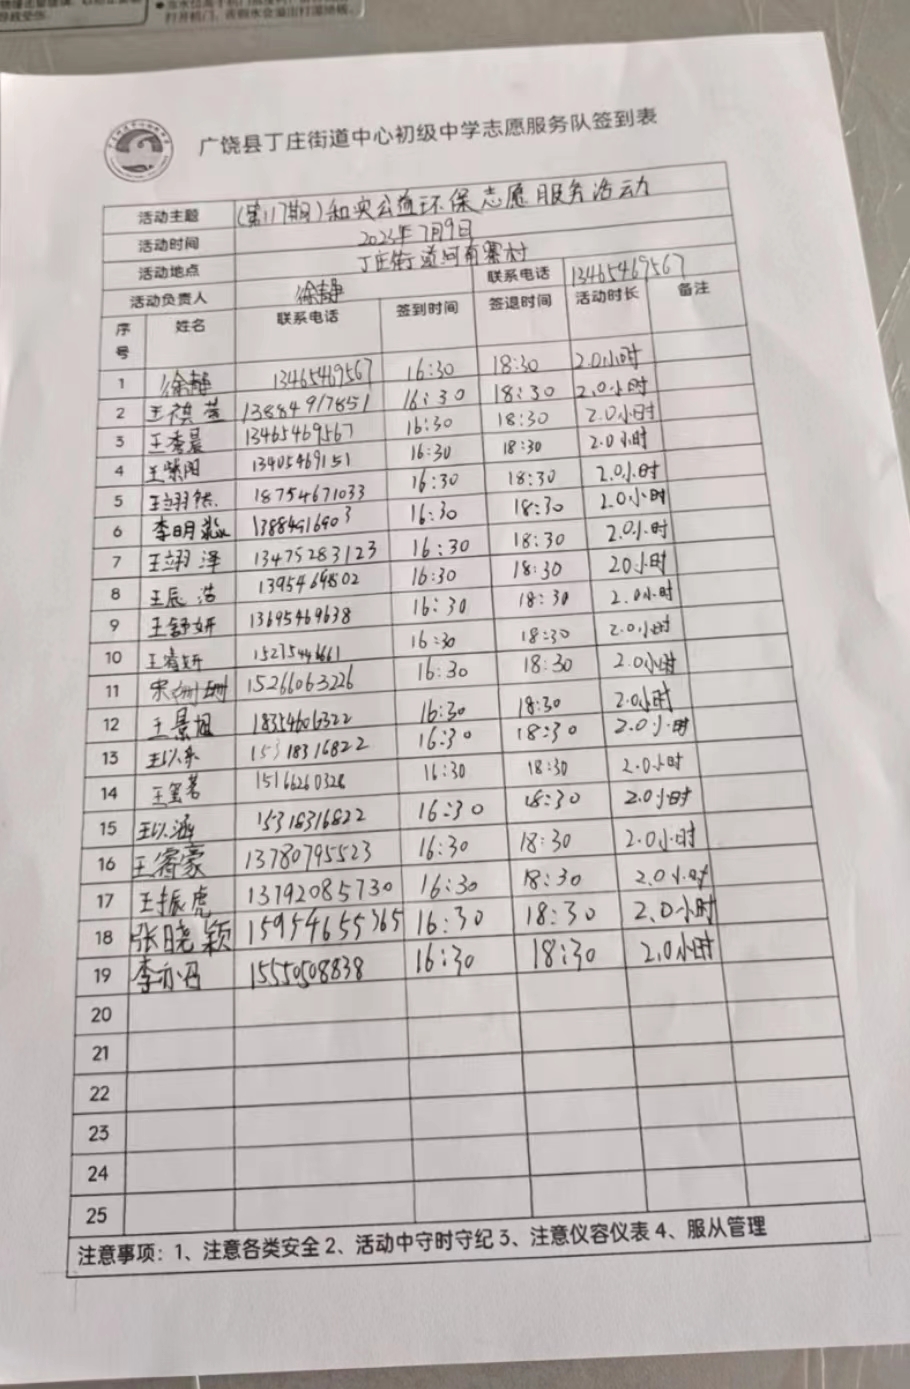 广饶县丁庄街道中心初级中学志愿服务队签到表
活动主题 (第117期)和实公益环保志愿服务活动
活动时间 2023年7月9日
活动地点 丁庄街道河南寨村
活动负责人 徐静 联系电话 13465469567
序号 姓名 联系电话 签到时间 签退时间 活动时长 备注
1 徐静 13465469567 16:30 18:30 2.0小时
2 王祺萱 13884917851 16:30 18:30 2.0小时
3 王秀晨 13465469567 16:30 18:30 2.0小时
4 王紫阳 13405469151 16:30 18:30 2.0小时
5 王翊然 18754671033 16:30 18:30 2.0小时
6 李明 13884916903 16:30 18:30 2.0小时
7 王翊泽 13475283123 16:30 18:30 2.0小时
8 王辰浩 16:30 18:30 20小时
9 王舒妍 13695469638 16:30 18:30 2.0小时
10 王睿妍 16:30 18:30 2.0小时
11 宋姗姗 15266063226 16:30 18:30 2.0小时
12 王景旭 18354606322 16:30 18:30 2.0小时
13 王以乐 15318316822 16:30 18:30 2.0小时
14 15166260328 16:30 18:30 2.0小时
15 王以涵 15318316822 16:30 18:30 2.0小时
16 王睿豪 13780795523 16:30 18:30 2.0小时
17 王振虎 13792085730 16:30 18:30 2.0小时
18 张晓颖 15954655365 16:30 18:30 2.0小时
19 李亦 15550508838 16:30 18:30 2.0小时
20
21
22
23
24
25
注意事项：1、注意各类安全 2、活动中守时守纪 3、注意仪容仪表 4、服从管理